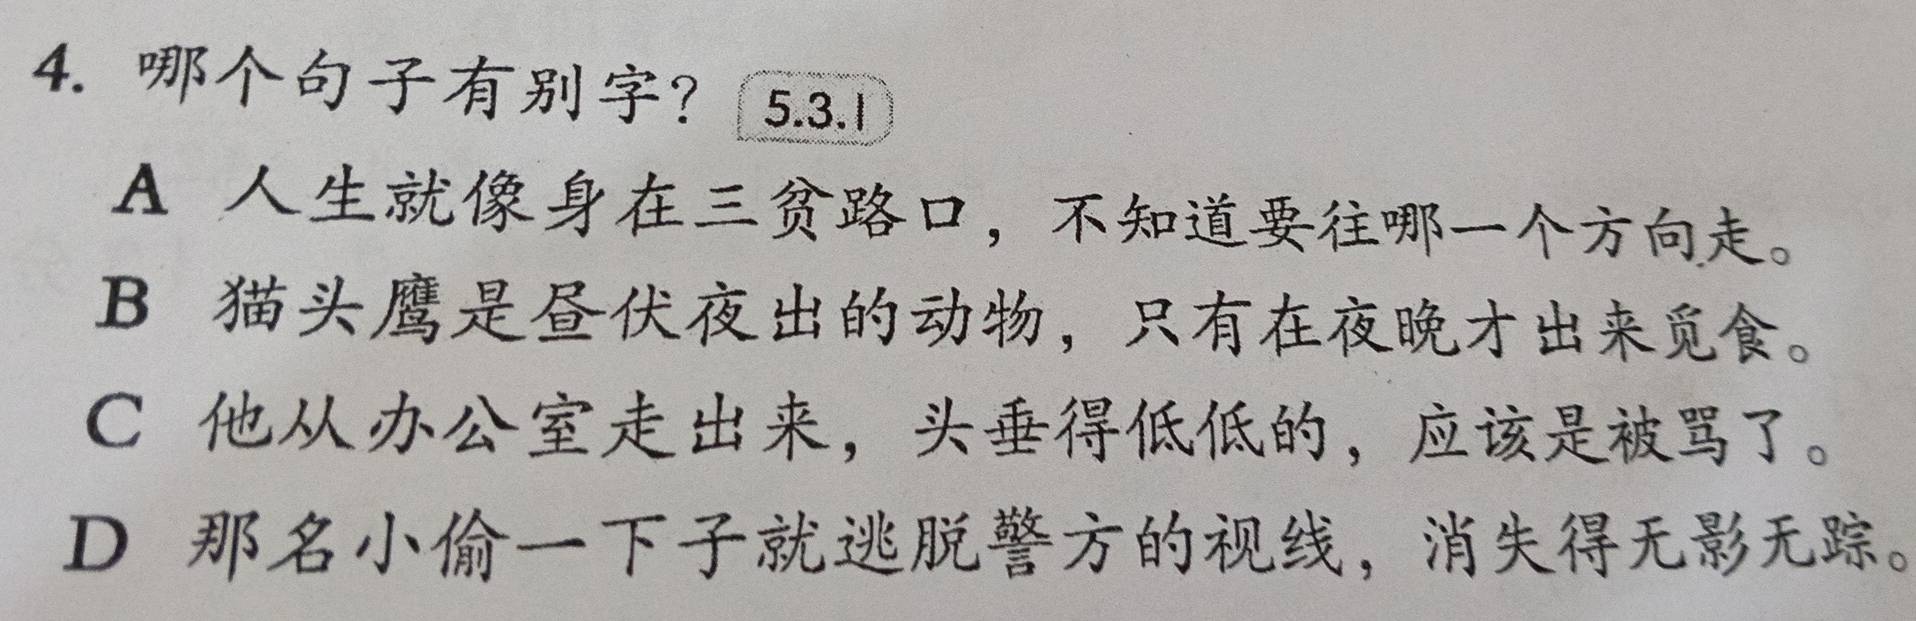 4. 哪个句子有别字？ 5.3.1
A 人生就像身在三贫路口，不知道要往哪一个方向走。
B 猫头鹰是昼伏夜出的动物，只有在夜晚才出来觅食。
C 他从办公室走出来，头垂得低低的，应该是被骂了。
D 那名小偷一下子就逃脱警方的视线，消失得无影无踪。